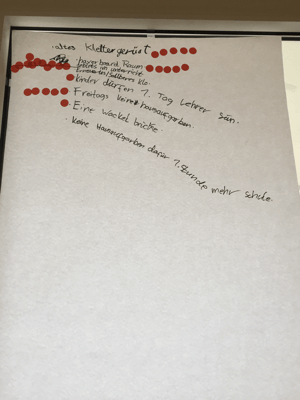 . altes Klettergerüst
. hover board Raum
Handys im unterricht
kinder dürfen 1. Tag Lehrer sein.
Freitags keine hausaufgaben.
. Eine Wackel brücke.
. Keine Hausaufgaben dafür 1. Stunde mehr schule.